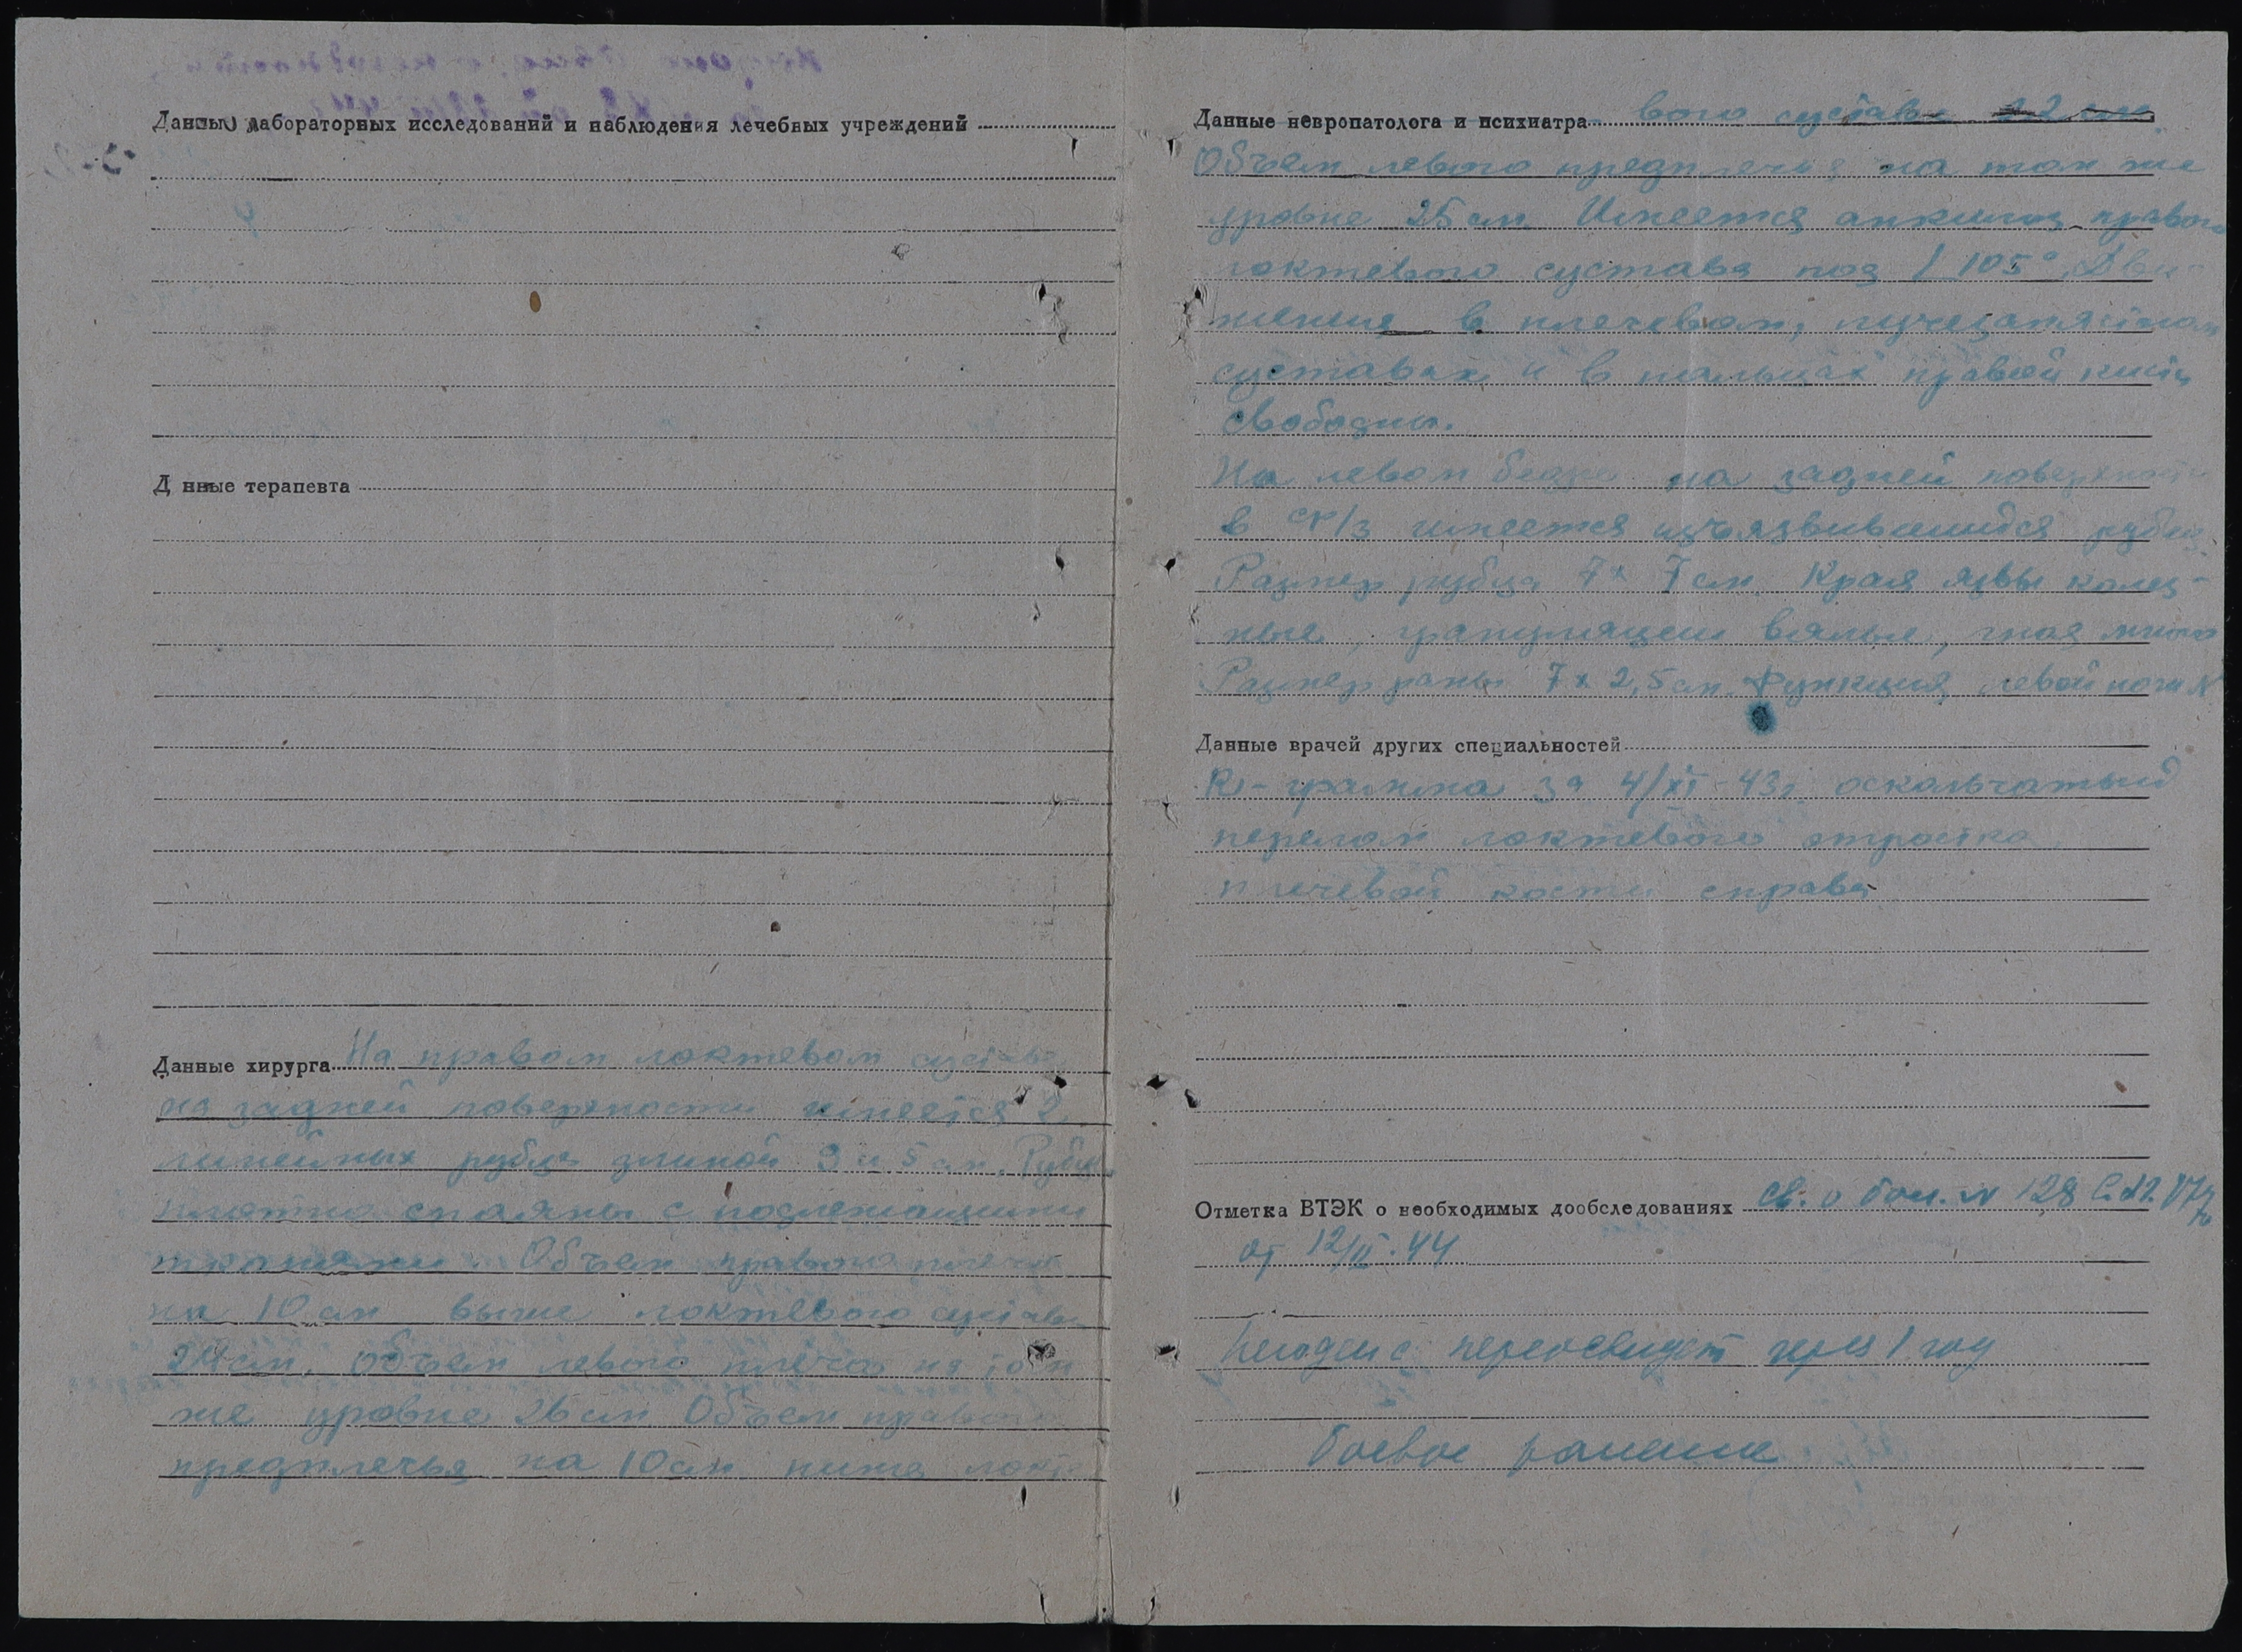 Данные лабораторных исследований и наблюдения лечебных учреждений
Д нные терапевта
Данные хирурга На правом локтевом суставе
на задней поверхности имеется 2
линейных рубца длиной 9 и 5 см. Рубцы
плотно спаяны с подлежащими
тканями. Объем правого плеча
на 10 см выше локтевого сустава
24 см, объем левого плеча на том
же уровне 26 см Объем правого
предплечья на 10 см ниже локте
Данные невропатолога и психиатра вого сустава 22 см
Объем левого предплечья на том же
уровне 25 см. Имеется анкилоз правого
локтевого сустава под 105° Дви-
жения в плечевом, лучезапястном
суставах и в пальцах правой кисти
свободны.
На левом бедре на задней поверхности
в ср/з имеется изъязвившийся рубец.
Размер рубца 7 х 7 см. Края язвы калез-
ные, грануляции вялые, гноя много
Размер раны 7 х 2,5 см. Функция левой ноги N
Данные врачей других специальностей
R-грамма за 4/XI-43г. оскольчатый
перелом локтевого отростка
плечевой кости справа
Отметка ВТЭК о необходимых дообследованиях св. о бол. N 128
от 12/II.44
переосвидет через 1 год
боевое ранение